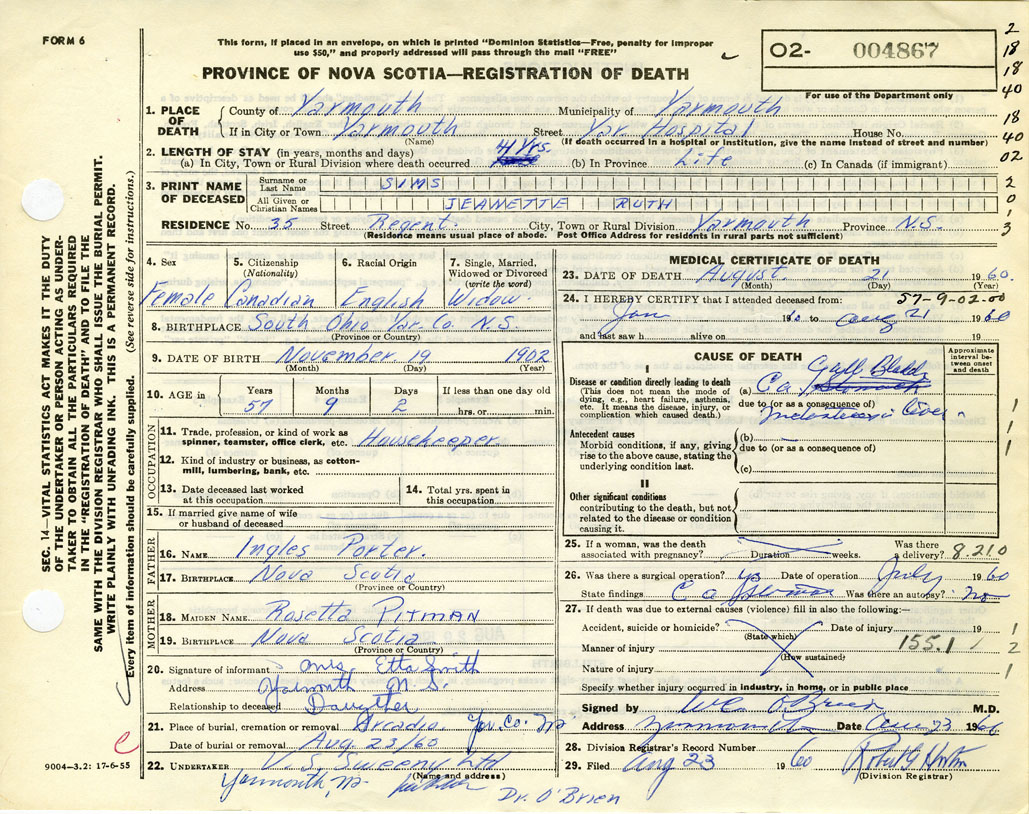 FORM 6
This form, if placed in an envelope, on which is printed "Dominion Statistics—Free, penalty for improper
use $50," and properly addressed will pass through the mail "FREE"
PROVINCE OF NOVA SCOTIA—REGISTRATION OF DEATH
O2- 004867
For use of the Department only
2
18
18
40
18
40
02
2
0
1
3
SEC. 14—VITAL STATISTICS ACT MAKES IT THE DUTY
OF THE UNDERTAKER OR PERSON ACTING AS UNDER-
TAKER TO OBTAIN ALL THE PARTICULARS REQUIRED
IN THE "REGISTRATION OF DEATH" AND TO FILE THE
SAME WITH THE DIVISION REGISTRAR WHO SHALL ISSUE THE BURIAL PERMIT.
WRITE PLAINLY WITH UNFADING INK. THIS IS A PERMANENT RECORD.
Every item of information should be carefully supplied. (See reverse side for instructions.)
1. PLACE OF DEATH
County of Yarmouth Municipality of Yarmouth
If in City or Town Yarmouth Street Yar. Hospital House No.
(Name) (If death occurred in a hospital or institution, give the name instead of street and number)
2. LENGTH OF STAY (in years, months and days)
(a) In City, Town or Rural Division where death occurred 4 Yrs. (b) In Province Life (c) In Canada (if immigrant)
3. PRINT NAME OF DECEASED
Surname or Last Name SIMS
All Given or Christian Names JEANETTE RUTH
RESIDENCE No. 35 Street Regent. City, Town or Rural Division Yarmouth Province N.S.
(Residence means usual place of abode. Post Office Address for residents in rural parts not sufficient)
4. Sex
Female
5. Citizenship
(Nationality)
Canadian
6. Racial Origin
English
7. Single, Married,
Widowed or Divorced
(write the word)
Widow.
8. BIRTHPLACE South Ohio Yar. Co. N.S.
(Province or Country)
9. DATE OF BIRTH November 19 1902
(Month) (Day) (Year)
10. AGE in Years Months Days If less than one day old
57 9 2 hrs. or min.
OCCUPATION
11. Trade, profession, or kind of work as
spinner, teamster, office clerk, etc. Housekeeper
12. Kind of industry or business, as cotton-
mill, lumbering, bank, etc.
13. Date deceased last worked
at this occupation
14. Total yrs. spent in
this occupation
15. If married give name of wife
or husband of deceased
FATHER
16. NAME Ingles Porter.
17. BIRTHPLACE Nova Scotia
(Province or Country)
MOTHER
18. MAIDEN NAME Rosetta PITMAN
19. BIRTHPLACE Nova Scotia
(Province or Country)
20. Signature of informant Mrs. Etta Smith
Address Yarmouth N.S.
Relationship to deceased Daughter
21. Place of burial, cremation or removal Arcadia Yar. Co. NS
Date of burial or removal Aug 23/60
22. UNDERTAKER V.S. Sweeny Ltd
(Name and address)
Yarmouth, NS
Dr. O'Brien
9004—3.2: 17-6-55
MEDICAL CERTIFICATE OF DEATH
23. DATE OF DEATH August 21 1960
(Month) (Day) (Year)
24. I HEREBY CERTIFY that I attended deceased from: 57-9-02-00
Jan 1960 to Aug 21 1960
and last saw h alive on 19
CAUSE OF DEATH
Approximate
interval be-
tween onset
and death
I
Disease or condition directly leading to death
(This does not mean the mode of
dying, e.g., heart failure, asthenia,
etc. It means the disease, injury, or
complication which caused death.)
(a) Ca Gall Bladder
due to (or as a consequence of)
Liver
1
1
1
Antecedent causes
Morbid conditions, if any, giving
rise to the above cause, stating the
underlying condition last.
(b)
due to (or as a consequence of)
(c)
II
Other significant conditions
contributing to the death, but not
related to the disease or condition
causing it.
25. If a woman, was the death
associated with pregnancy? Duration weeks. Was there
a delivery? 8.210
26. Was there a surgical operation? yes Date of operation July 1960
State findings Ca Was there an autopsy? No
27. If death was due to external causes (violence) fill in also the following:—
Accident, suicide or homicide? Date of injury 19 1
(State which)
Manner of injury 155.1 1 2
(How sustained)
Nature of injury 1
Specify whether injury occurred in industry, in home, or in public place
Signed by W.C. O'Brien M.D.
Address Yarmouth Date Aug 23 1960
28. Division Registrar's Record Number
29. Filed Aug 23 1960 Robert G Horton
(Division Registrar)